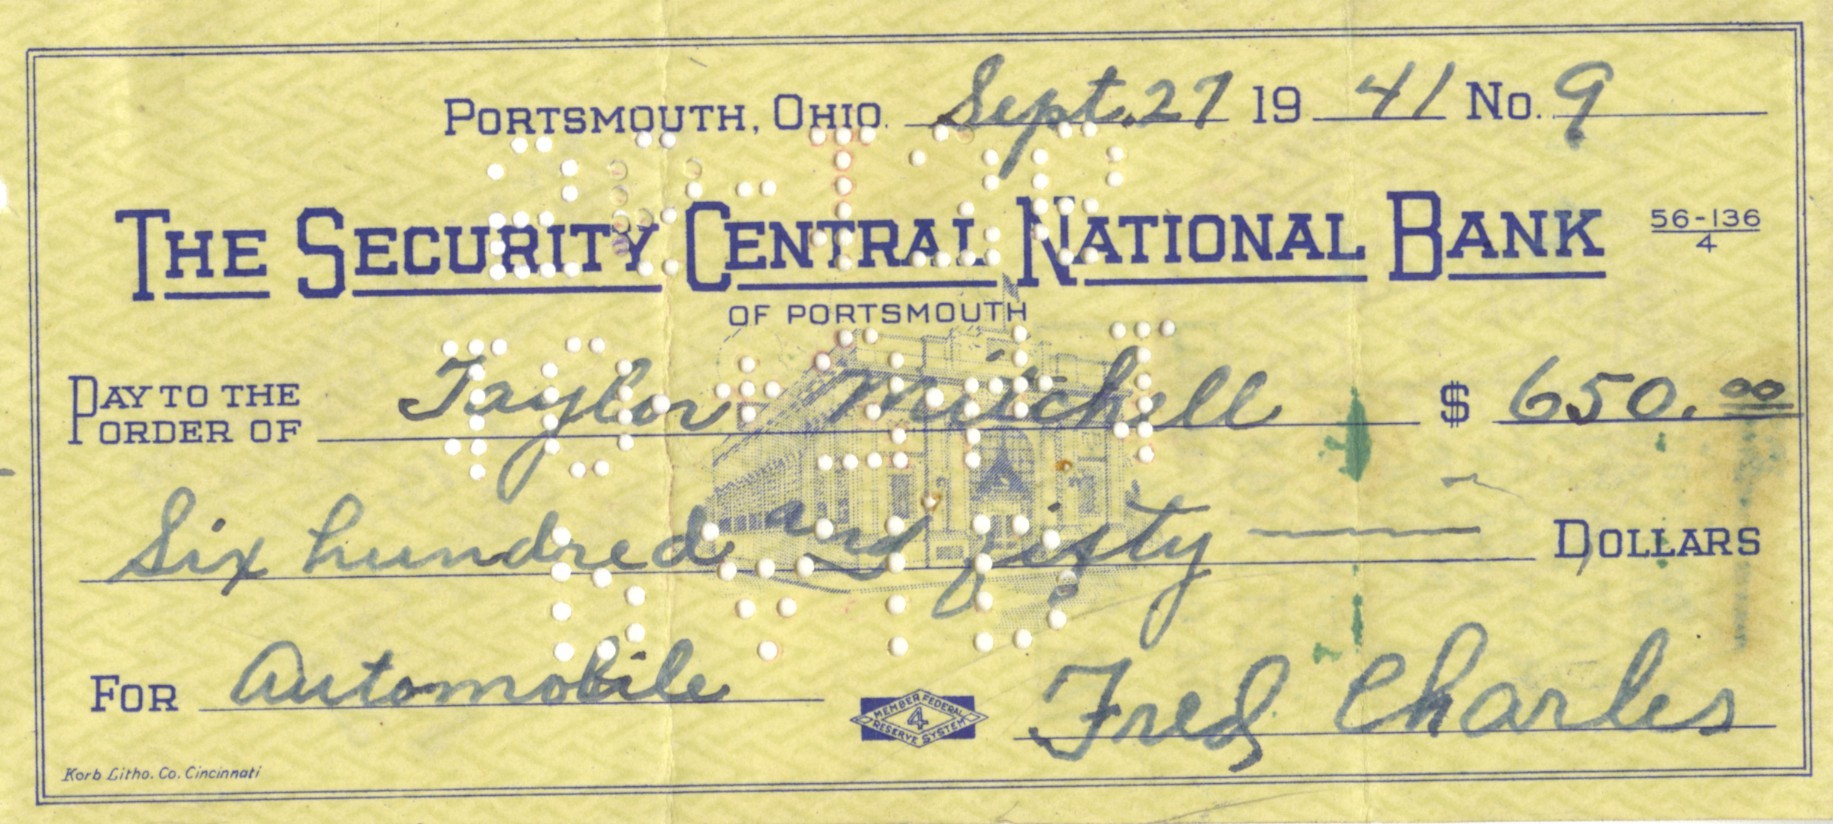 PORTSMOUTH, OHIO. Sept. 27 19 41 No. 9
THE SECURITY CENTRAL NATIONAL BANK 56-136/4
OF PORTSMOUTH
PAY TO THE ORDER OF Taylor Mitchell $ 650.00
Six hundred and fifty DOLLARS
FOR Automobile
MEMBER FEDERAL RESERVE SYSTEM 4
Fred Charles
Korb Litho. Co. Cincinnati